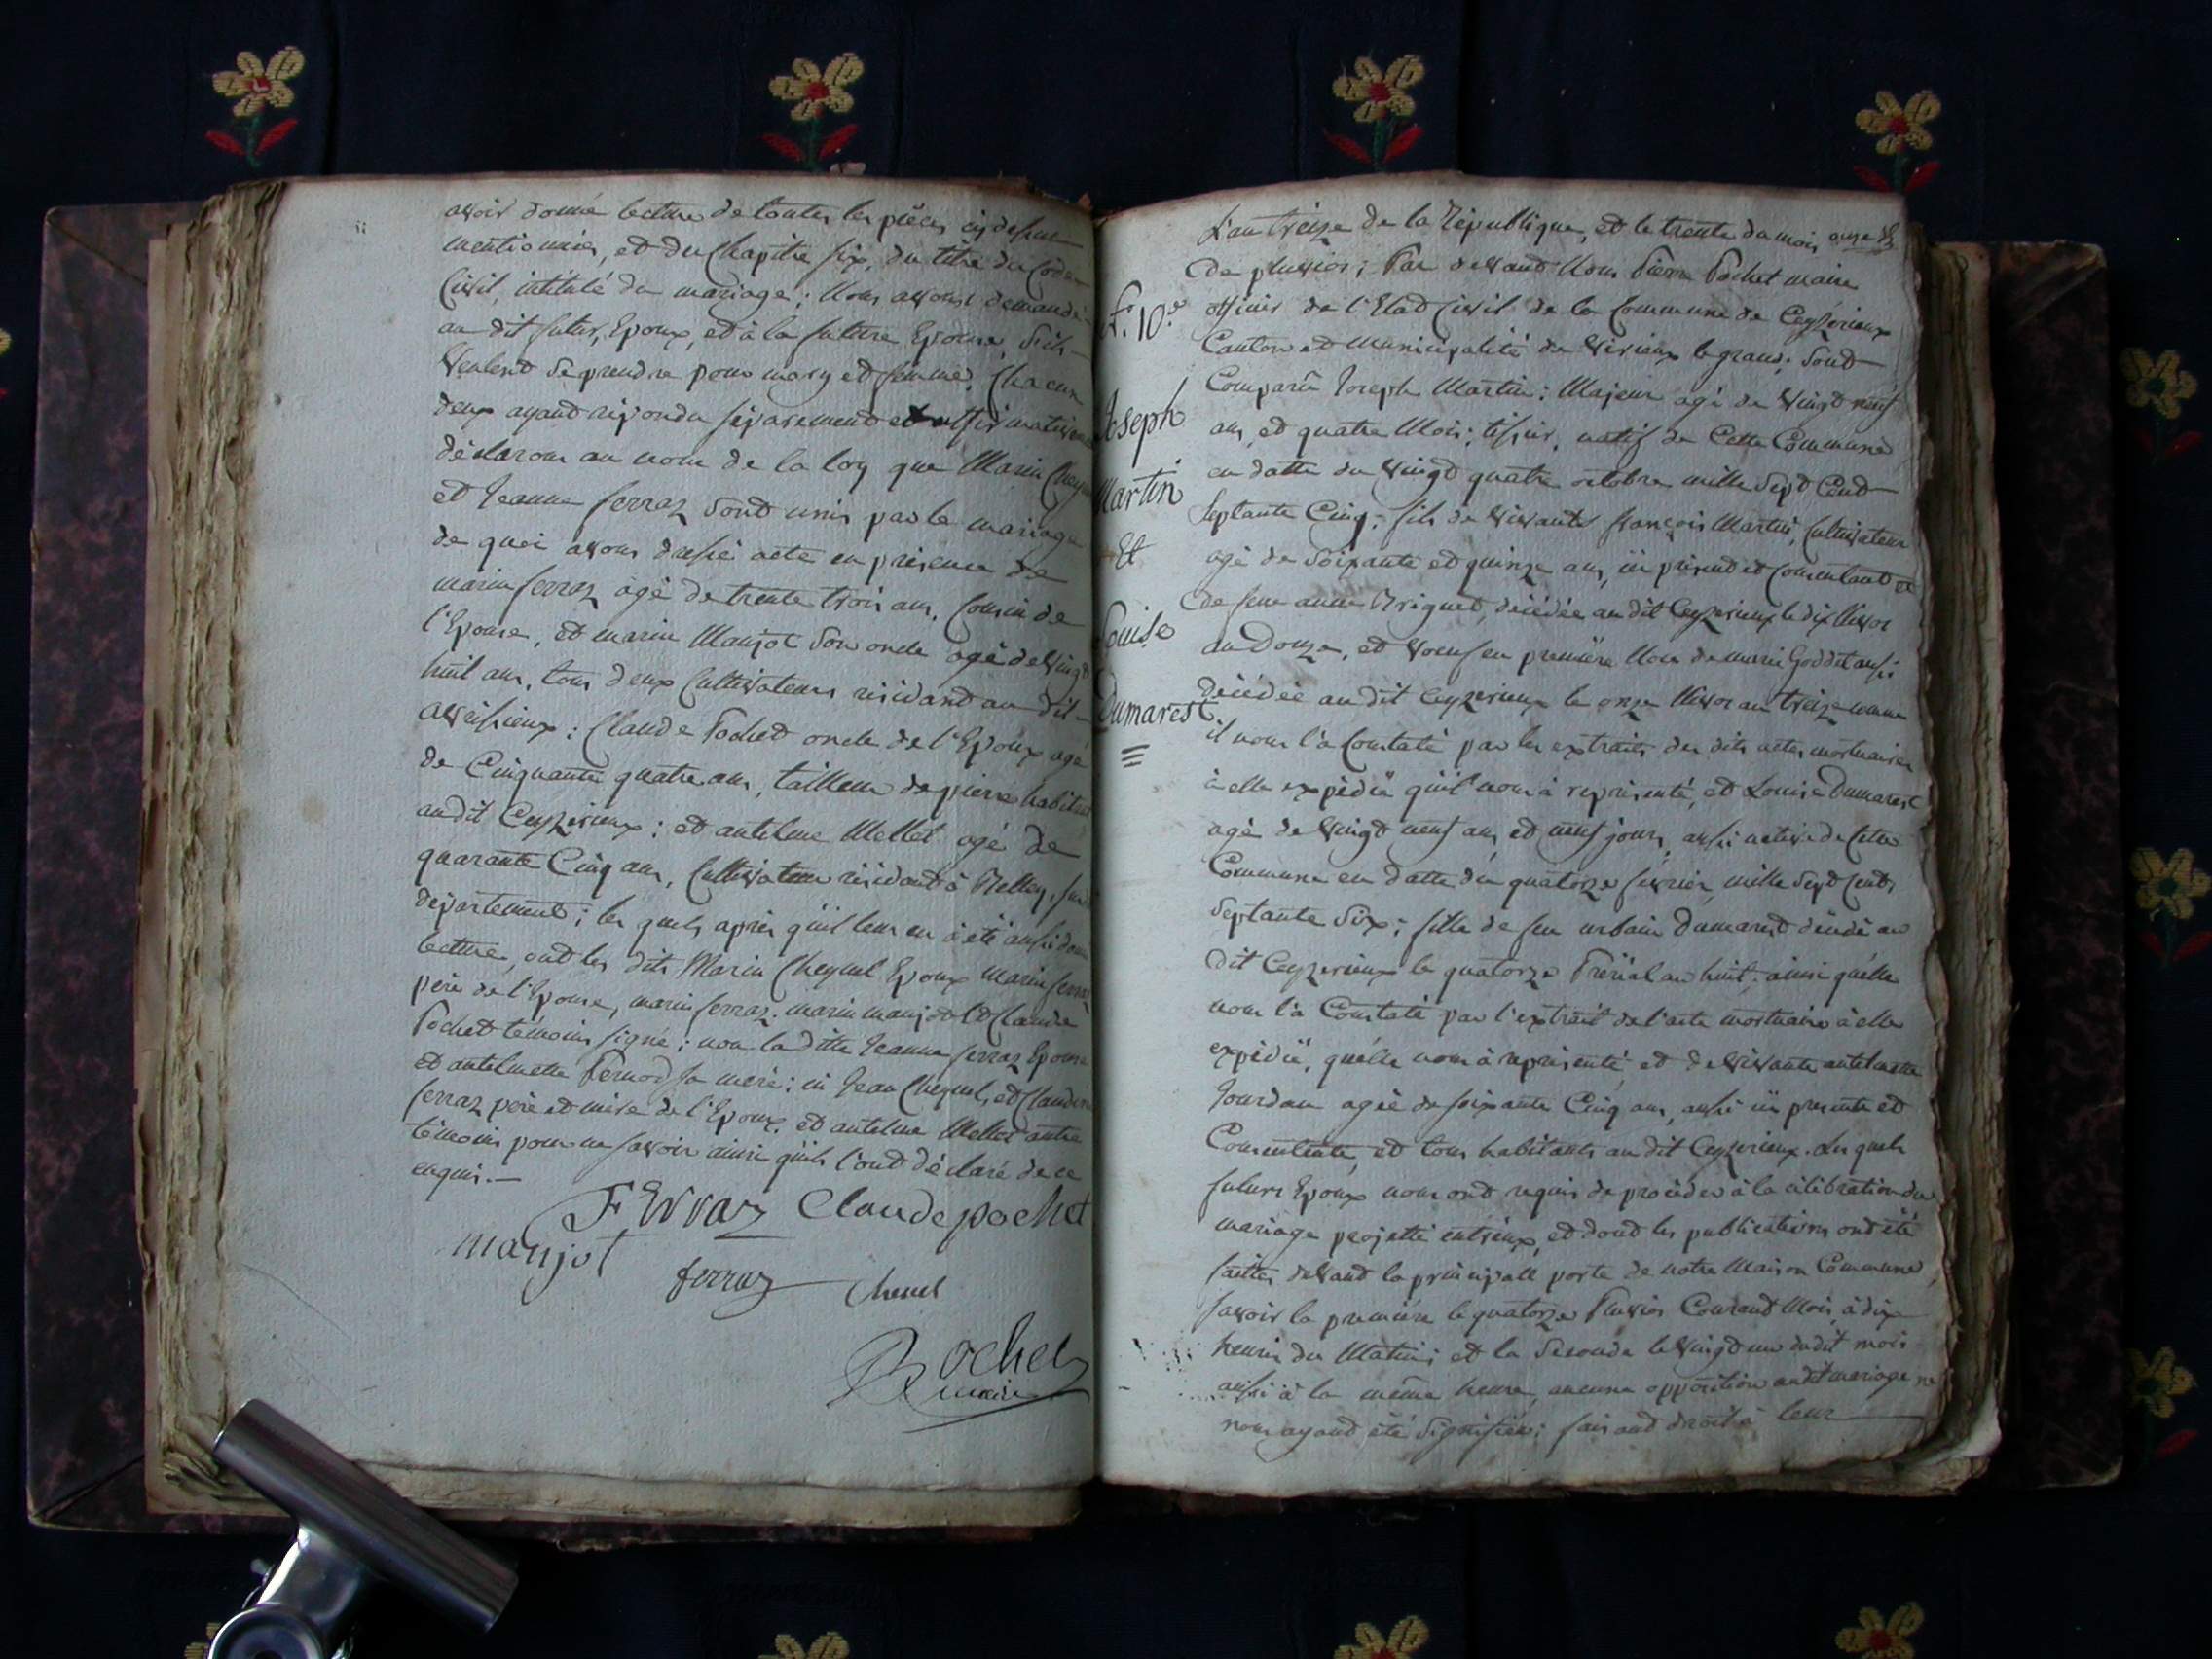 avoir donné lecture de toutes les pièces cy dessus
mentionnées, et du Chapitre six, du titre du Code
Civil, intitulé du mariage; Nous avons demandé
au dit futur, Epoux, et à la future Epouse, S'ils
Veulent se prendre pour mary et femme, Chacun
deux ayant répondu séparement et affirmativem
déclarons au nom de la loy que Marin Chey
et Jeanne ferraz sont unis par le mariage
de quoi avons dressé acte en présence de
marin ferraz agé de trente trois ans, Cousin de
l'Epouse, et marin Manjot son oncle agé de vingt
huit ans, tous deux Cultivateurs résidant au dit
avrissieux; Claude Pochet oncle de l'Epoux agé
de Cinquante quatre ans, tailleur de pierre habitant
au dit Ceyzerieux; et antelme Mellet agé de
quarante Cinq ans, Cultivateur résidant à Belley,
département; les quels après qu'il leur en à été aussi donné
lecture, ont les dits Marin Cheynel Epoux marin ferraz
père de l'Epouse, marin ferraz, marin manjot et Claude
Pochet témoins signé; non la ditte Jeanne ferraz Epouse
et antelmette Pernod sa mere; ni Jean Cheynel, et Claudine
ferraz père et mère de l'Epoux, et antelme Mellet autre
témoin pour ne savoir ainsi qu'ils l'ont déclaré de ce
enquis.—
FErraz Claude pochet
manjot
ferraz Chenel
Pochet
maire
L'an treize de la République, et le trente du mois onze
De pluvios; Par devant Nous Pierre Pochet maire
N.° 10.e officier de l'Etat Civil de la Commune de Ceyzérieux
Canton et Municipalité de Virieux le grand; Sont
Comparû Joseph Martin; Majeur agé de Vingt neuf
Joseph ans, et quatre Mois; tissier, natif de Cette Commune
en datte du Vingt quatre octobre mille Sept Cent
Martin Septante Cinq; fils de vivants françois Martin, Cultivateur
Et agé de Soixante et quinze ans, ici présent et Consentant et
de feue anne Briguet, décédée au dit Ceyzerieux le dix Nivos
Louise an Douze, et Voeuf en première Noce de marie Goddet aussi
Dumarest décédée au dit Ceyzerieux le onze Nivos an treize comme
il nous l'à Constaté par les extraits des dits actes mortuaires
à elle expédié qu'il nous à représenté, et Louise Dumarest
agé de Vingt neuf ans et neuf jours, aussi native de Cette
Commune en datte du quatorze fevrier mille Sept Cents
Septante Six; fille de feu urbain Dumarest décédé au
dit Ceyzerieux le quatorze Prérial an huit; ainsi qu'elle
nous l'à Constaté par l'extrait de l'acte mortuaire à elle
expédié, qu'elle nous à représenté, et de vivante antelmette
Jourdan agée de soixante Cinq ans, aussi ici presente et
Consentente, et tous habitants au dit Ceyzerieux. Les quels
futurs Epoux nous ont requis de procéder à la célébration du
mariage projetté entr'eux, et dont les publications ont été
faittes devant la principalle porte de notre Maison Commune,
savoir la première le quatorze Pluvios Courant Mois, à dix
heures du Matin; et la Seconde le Vingt un du dit mois
aussi à la même heure, aucune opposition au dit mariage ne
nous ayant été signifiée; faisant droit à leur